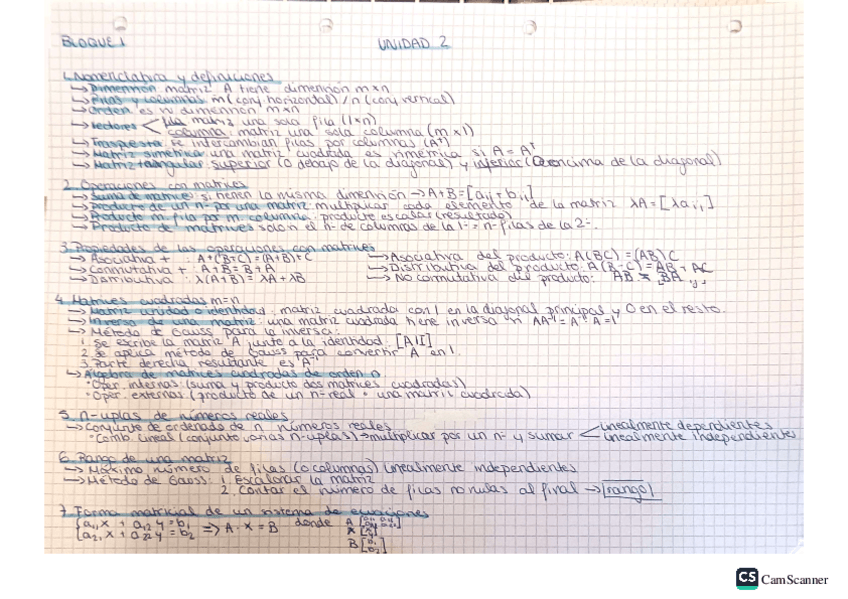 BLOQUE 1 UNIDAD 2
1. Nomenclatura y definiciones
→ Dimensión matriz A tiene dimensión m×n
→ Filas y columnas m (conj. horizontal) / n (conj. vertical)
→ Orden es n dimensión m×n
→ Vectores < fila matriz una sola fila (1×n)
columna: matriz una sola columna (m×1)
→ Traspuesta se intercambian filas por columnas (Aᵗ)
→ Matriz simétrica una matriz cuadrada es simétrica si A = Aᵗ
→ Matriz triangular: superior (0 debajo de la diagonal) y inferior (0 encima de la diagonal)
2. Operaciones con matrices
→ Suma de matrices si tienen la misma dimensión → A+B=[aij + bij]
→ producto de un nº por una matriz: multiplicar cada elemento de la matriz λA=[λaij]
→ Producto m. fila por m columna: producto escalar (resultado)
→ Producto de matrices solo n nº de columnas de la 1ª = nº filas de la 2ª.
3. Propiedades de las operaciones con matrices
→ Asociativa + : A+(B+C) = (A+B)+C → Asociativa del producto: A(BC) = (AB)C
→ Conmutativa + : A+B=B+A → Distributiva del producto: A(B+C)=AB+AC
→ Distributiva : λ(A+B) = λA+λB → No conmutativa del producto: AB ≠ BA
4. Matrices cuadradas m=n
→ Matriz unidad o identidad: matriz cuadrada con 1 en la diagonal principal y 0 en el resto.
→ Inversa de una matriz: una matriz cuadrada tiene inversa si AA⁻¹=A⁻¹A=I
→ Método de Gauss para la inversa:
1. Se escribe la matriz A junto a la identidad: [A|I]
2. Se aplica método de Gauss para convertir A en I.
3. Parte derecha resultante es A⁻¹
→ Álgebra de matrices cuadradas de orden n
• Oper. internas (suma y producto dos matrices cuadradas)
• Oper. externas (producto de un nº real • una matriz cuadrada)
5. n-uplas de números reales
→ Conjunto de ordenado de n números reales
• Comb. lineas (conjunto varias n-uplas) → multiplicar por un nº y sumar < linealmente dependientes
linealmente independientes
6. Rango de una matriz
→ Máximo número de filas (o columnas) linealmente independientes
→ Método de Gauss: 1. Escalonar la matriz
2. Contar el número de filas no nulas al final → rango
7. Forma matricial de un sistema de ecuaciones
{a₁₁x + a₁₂y = b₁ ⇒ A·x = B donde A [a₁₁ a₁₂
{a₂₁x + a₂₂y = b₂ X [x y]
B [b₁ b₂]
CS CamScanner